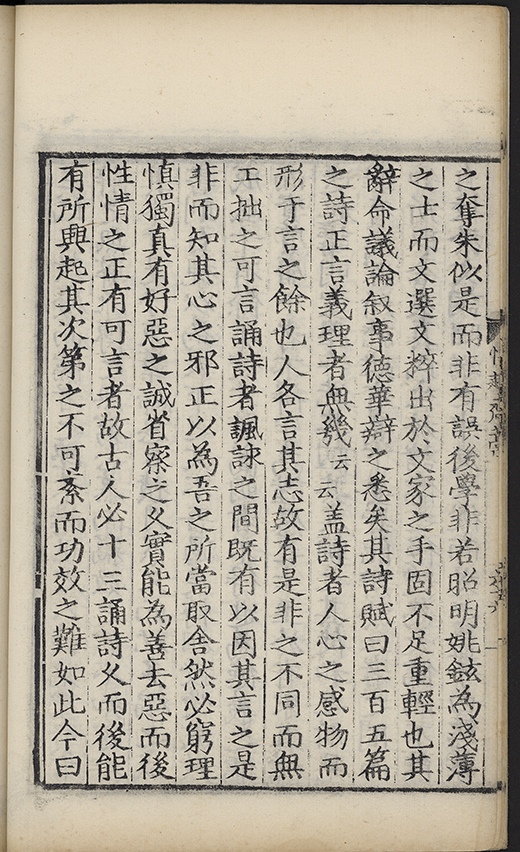 之奪朱似是而非有誤後學非若昭明姚鉉為淺薄
之士而文選文粹出於文家之手固不足重輕也其
辭命議論叙事德華辯之悉矣其詩賦曰三百五篇
之詩正言義理者無幾云云盖詩者人心之感物而
形于言之餘也人各言其志故有是非之不同而無
工拙之可言誦詩者諷詠之間既有以因其言之是
非而知其心之邪正以為吾之所當取舍然必窮理
慎獨真有好惡之誠省察之乆實能為善去惡而後
性情之正有可言者故古人必十三誦詩乆而後能
有所興起其次第之不可紊而功效之難如此今曰